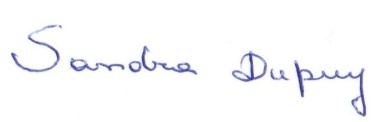 Sandra Dupuy